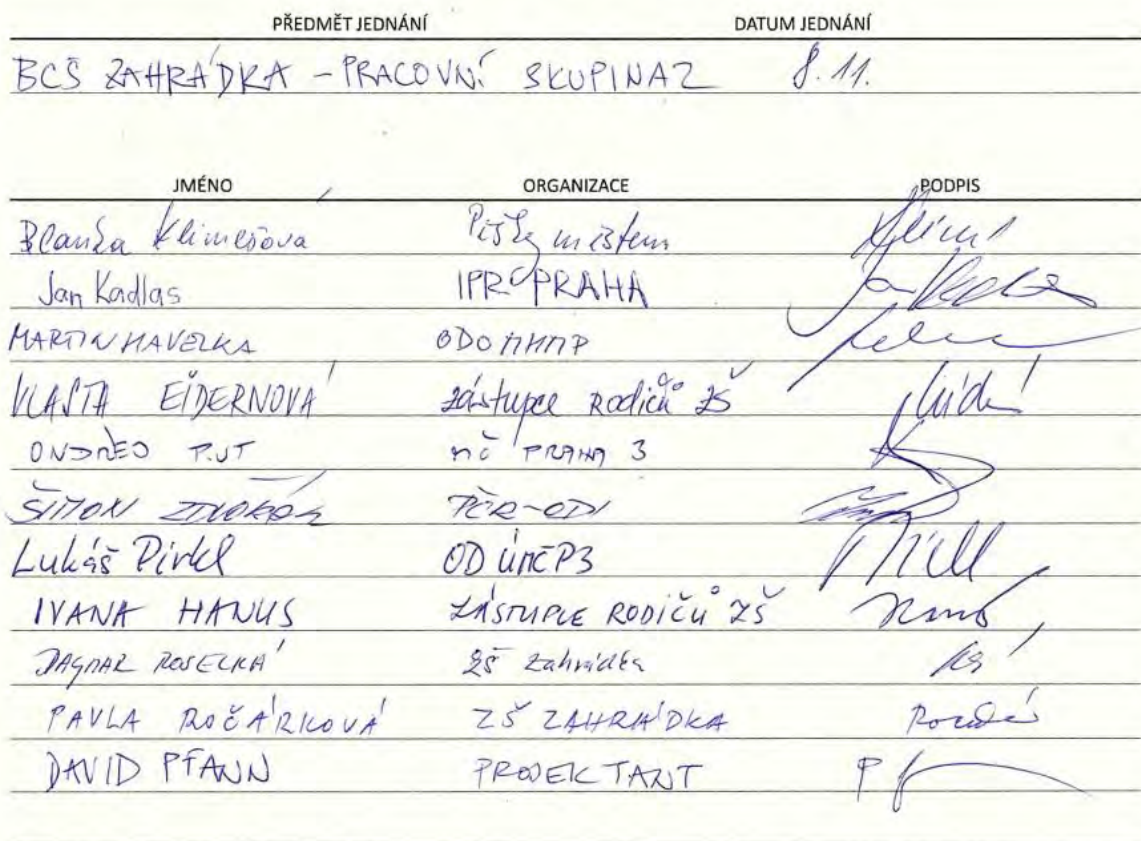 PŘEDMĚT JEDNÁNÍ DATUM JEDNÁNÍ
BCŠ ZAHRÁDKA - PRACOVNÍ SKUPINA 2 8.11.
JMÉNO ORGANIZACE PODPIS
Blanka Klimešová Pěšky městem
Jan Kadlas IPR PRAHA
MARTIN HAVELKA ODO MHMP
VLASTA EIDERNOVÁ zástupce Rodičů ZŠ
ONDŘEJ MČ PRAHA 3
ŠIMON PČR-ODI
Lukáš Pirkl OD ÚMČP3
IVANA HANUS ZÁSTUPCE RODIČŮ ZŠ
DAGMAR ZŠ Zahrádka
PAVLA ROČÁRKOVÁ ZŠ ZAHRÁDKA
DAVID PFANN PROJEKTANT